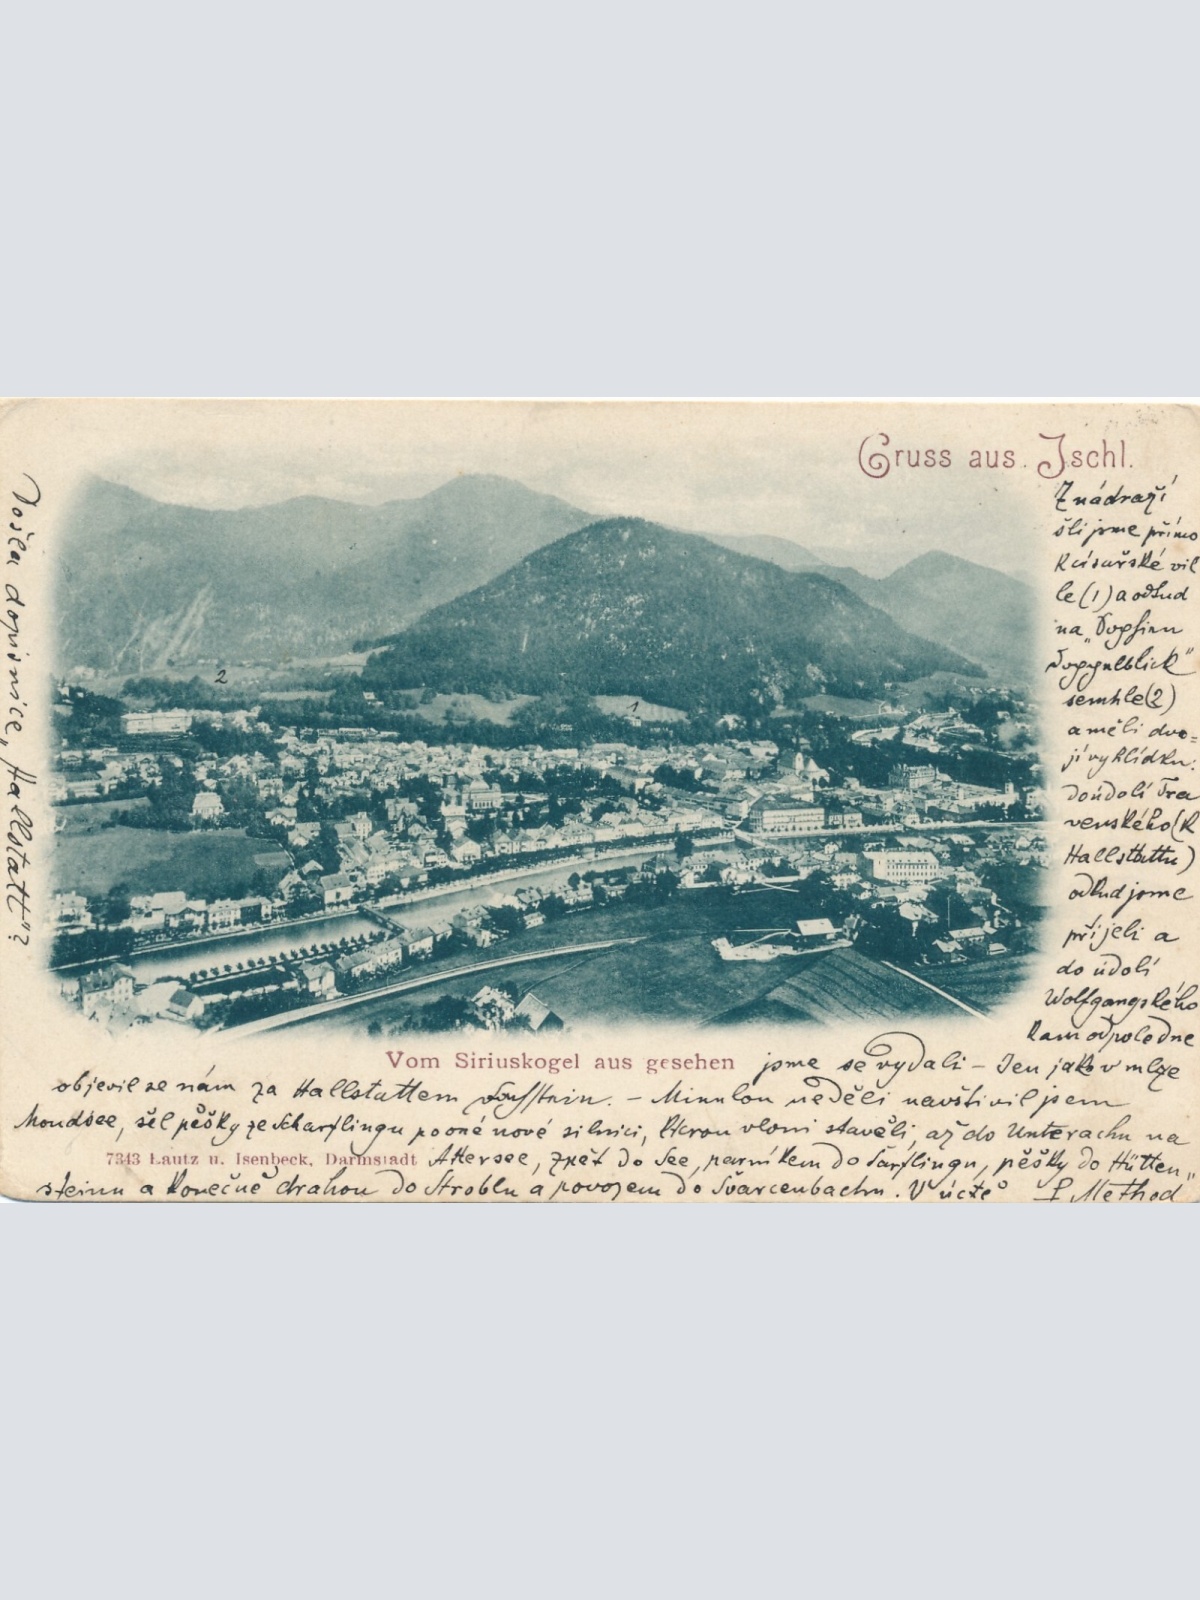 Gruss aus Ischl.
Z nádraží
šli jsme přímo
k císařské vil
le (1) a odtud
na „Sophien
Doppelblick"
semhle (2)
a měli dvo=
jí vyhlídku:
do údolí Tra
venského (k
Hallstattu)
odkud jsme
přijeli a
do údolí
Wolfgangského
kam odpoledne
Vom Siriuskogel aus gesehen
jsme se vydali – Jen jako v mlze
objevil se nám za Hallstattem – Minulou neděli navštívil jsem
Mondsee, šel pěšky ze Scharflingu po oné nové silnici, kterou vloni stavěli, až do Unterachu na
7343 Lautz u. Isenbeck, Darmstadt
Attersee, zpět do See, parníkem do Šarflingu, pěšky do Hütten„
steinu a konečně drahou do Stroblu a povozem do Švarcenbachu. V úctě P. Method
Došla dopisnice „Hallstatt"?
2
1